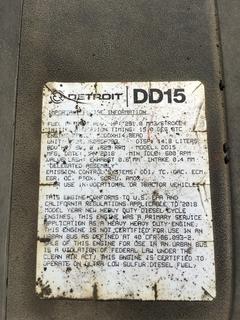 DETROIT DD15
IMPORTANT ENGINE INFORMATION
FUEL RATE AT ADV. HP: 291.0 MM3/STROKE
INITIAL INJECTION TIMING: 15.0 DEG BTC
DISP: 14.8 LITERS
MODEL: DD15
MIN IDLE: 600 RPM
VALVE LASH EXHAUST 0.6 MM INTAKE 0.4 MM
DELEGATED ASSEMBLY
EMISSION CONTROL SYSTEMS: DDI, TC, CAC, ECM,
EGR, OC, PTOX,
FOR USE IN VOCATIONAL OR TRACTOR VEHICLES
THIS ENGINE CONFORMS TO U.S. EPA AND
CALIFORNIA REGULATIONS APPLICABLE TO 2018
MODEL YEAR NEW HEAVY DUTY DIESEL CYCLE
ENGINES. THIS ENGINE HAS A PRIMARY SERVICE
APPLICATION AS A HEAVY HEAVY-DUTY ENGINE.
THIS ENGINE IS NOT CERTIFIED FOR USE IN AN
URBAN BUS AS DEFINED AT 40 CFR 86.093-2.
SALES OF THIS ENGINE FOR USE IN AN URBAN BUS
IS A VIOLATION OF FEDERAL LAW UNDER THE
CLEAN AIR ACT. THIS ENGINE IS CERTIFIED TO
OPERATE ON ULTRA LOW SULFUR DIESEL FUEL.